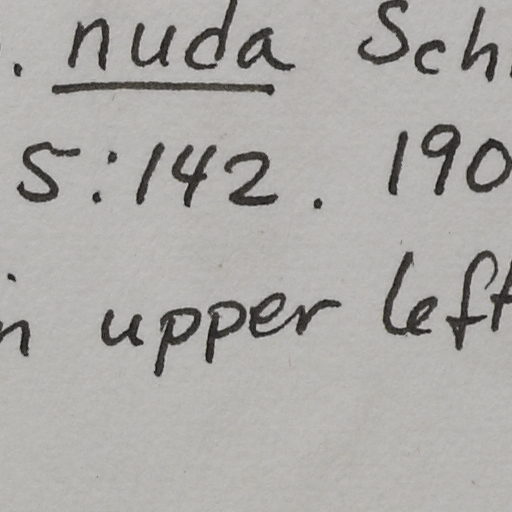 . nuda Sch
5:142. 190
n upper left